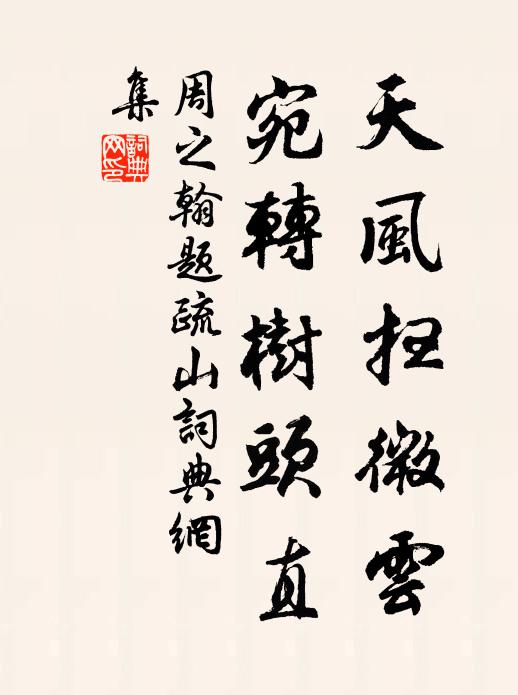 天風扫微雲
宛轉樹頭直
周之翰题疏山詞典網
集
詞典网印